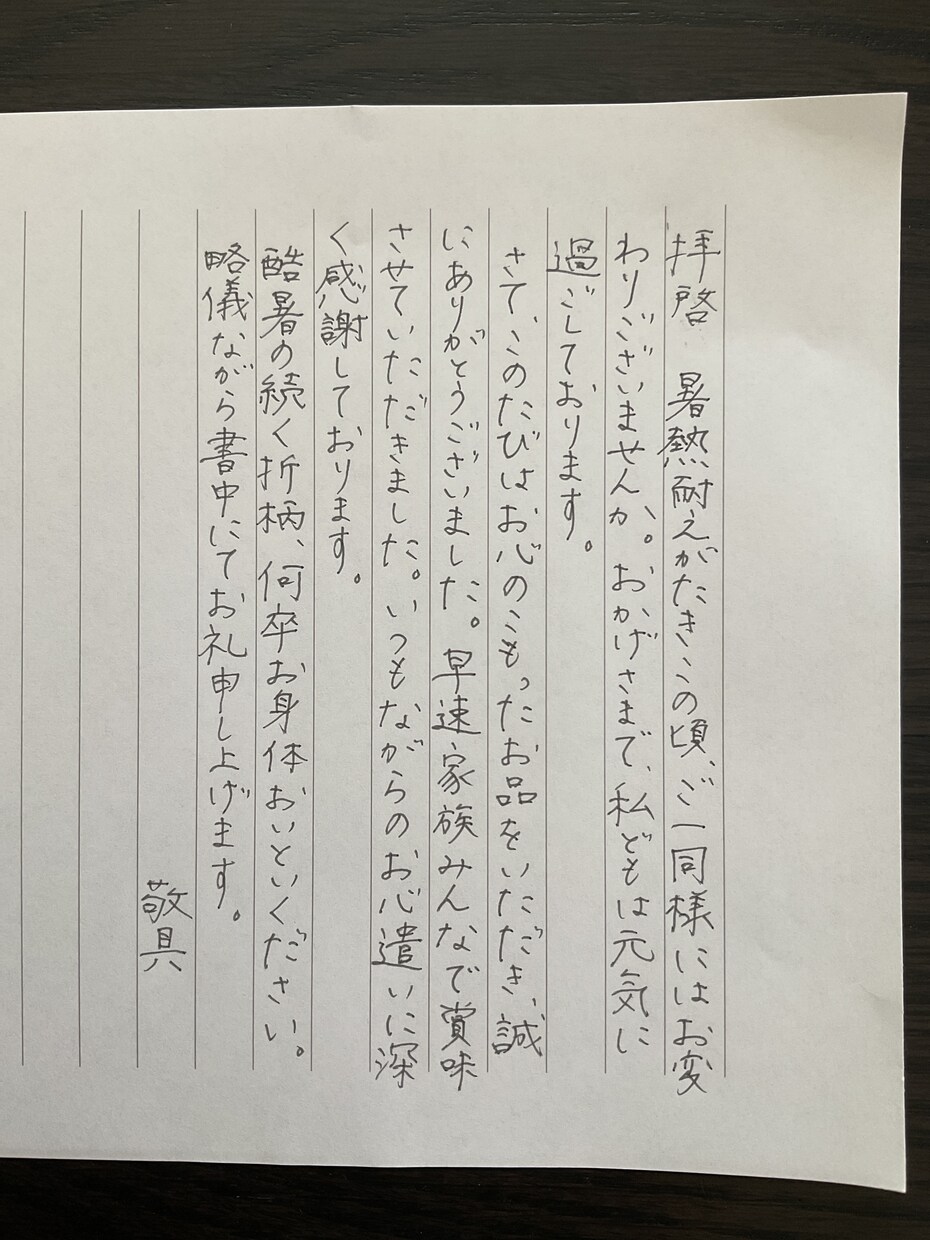 拝啓　暑熱耐えがたきこの頃、ご一同様にはお変
わりございませんか。おかげさまで、私どもは元気に
過ごしております。
さて、このたびはお心のこもったお品をいただき、誠
にありがとうございました。早速家族みんなで賞味
させていただきました。いつもながらのお心遣いに深
く感謝しております。
酷暑の続く折柄、何卒お身体おいといください。
略儀ながら書中にてお礼申し上げます。
敬具